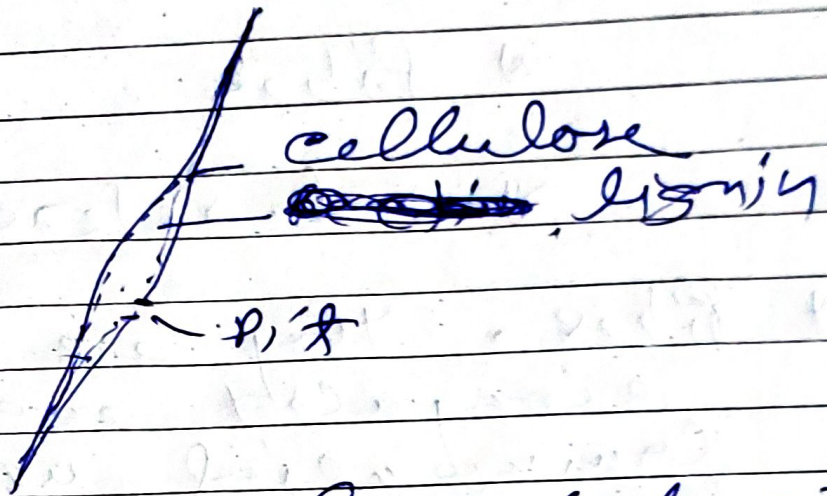 cellulose
lignin
pit